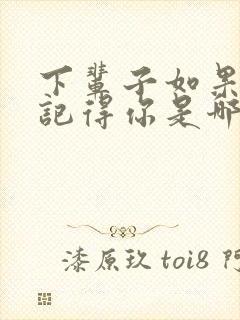 下輩子如果
記得你是哪
漆原玖 toi8